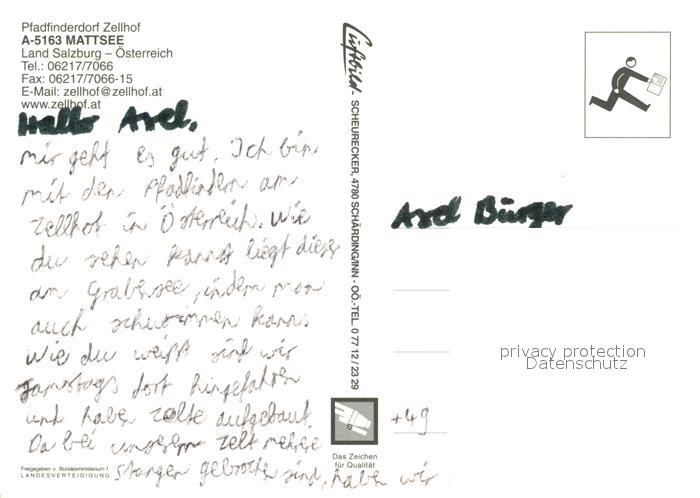 Pfadfinderdorf Zellhof
A-5163 MATTSEE
Land Salzburg – Österreich
Tel.: 06217/7066
Fax: 06217/7066-15
E-Mail: zellhof@zellhof.at
www.zellhof.at
Hallo Axel,
mir geht es gut. Ich bin
mit den Pfadfindern am
Zellhof in Österreich. Wie
du sehen kannst liegt dieser
am Grabensee, indem man
auch schwimmen kann.
Wie du weißt sind wir
samstags dort hingefahren
und haben Zelte aufgebaut.
Da bei unserem Zelt mehrere
Stangen gebrochen sind, haben wir
Freigegeben v. Bundesministerium f.
LANDESVERTEIDIGUNG
Luftbild - SCHEURECKER, 4780 SCHÄRDING/INN - OÖ.-TEL. 0 77 12 / 23 29
Das Zeichen
für Qualität
Axel Bürger
privacy protection
Datenschutz
+49